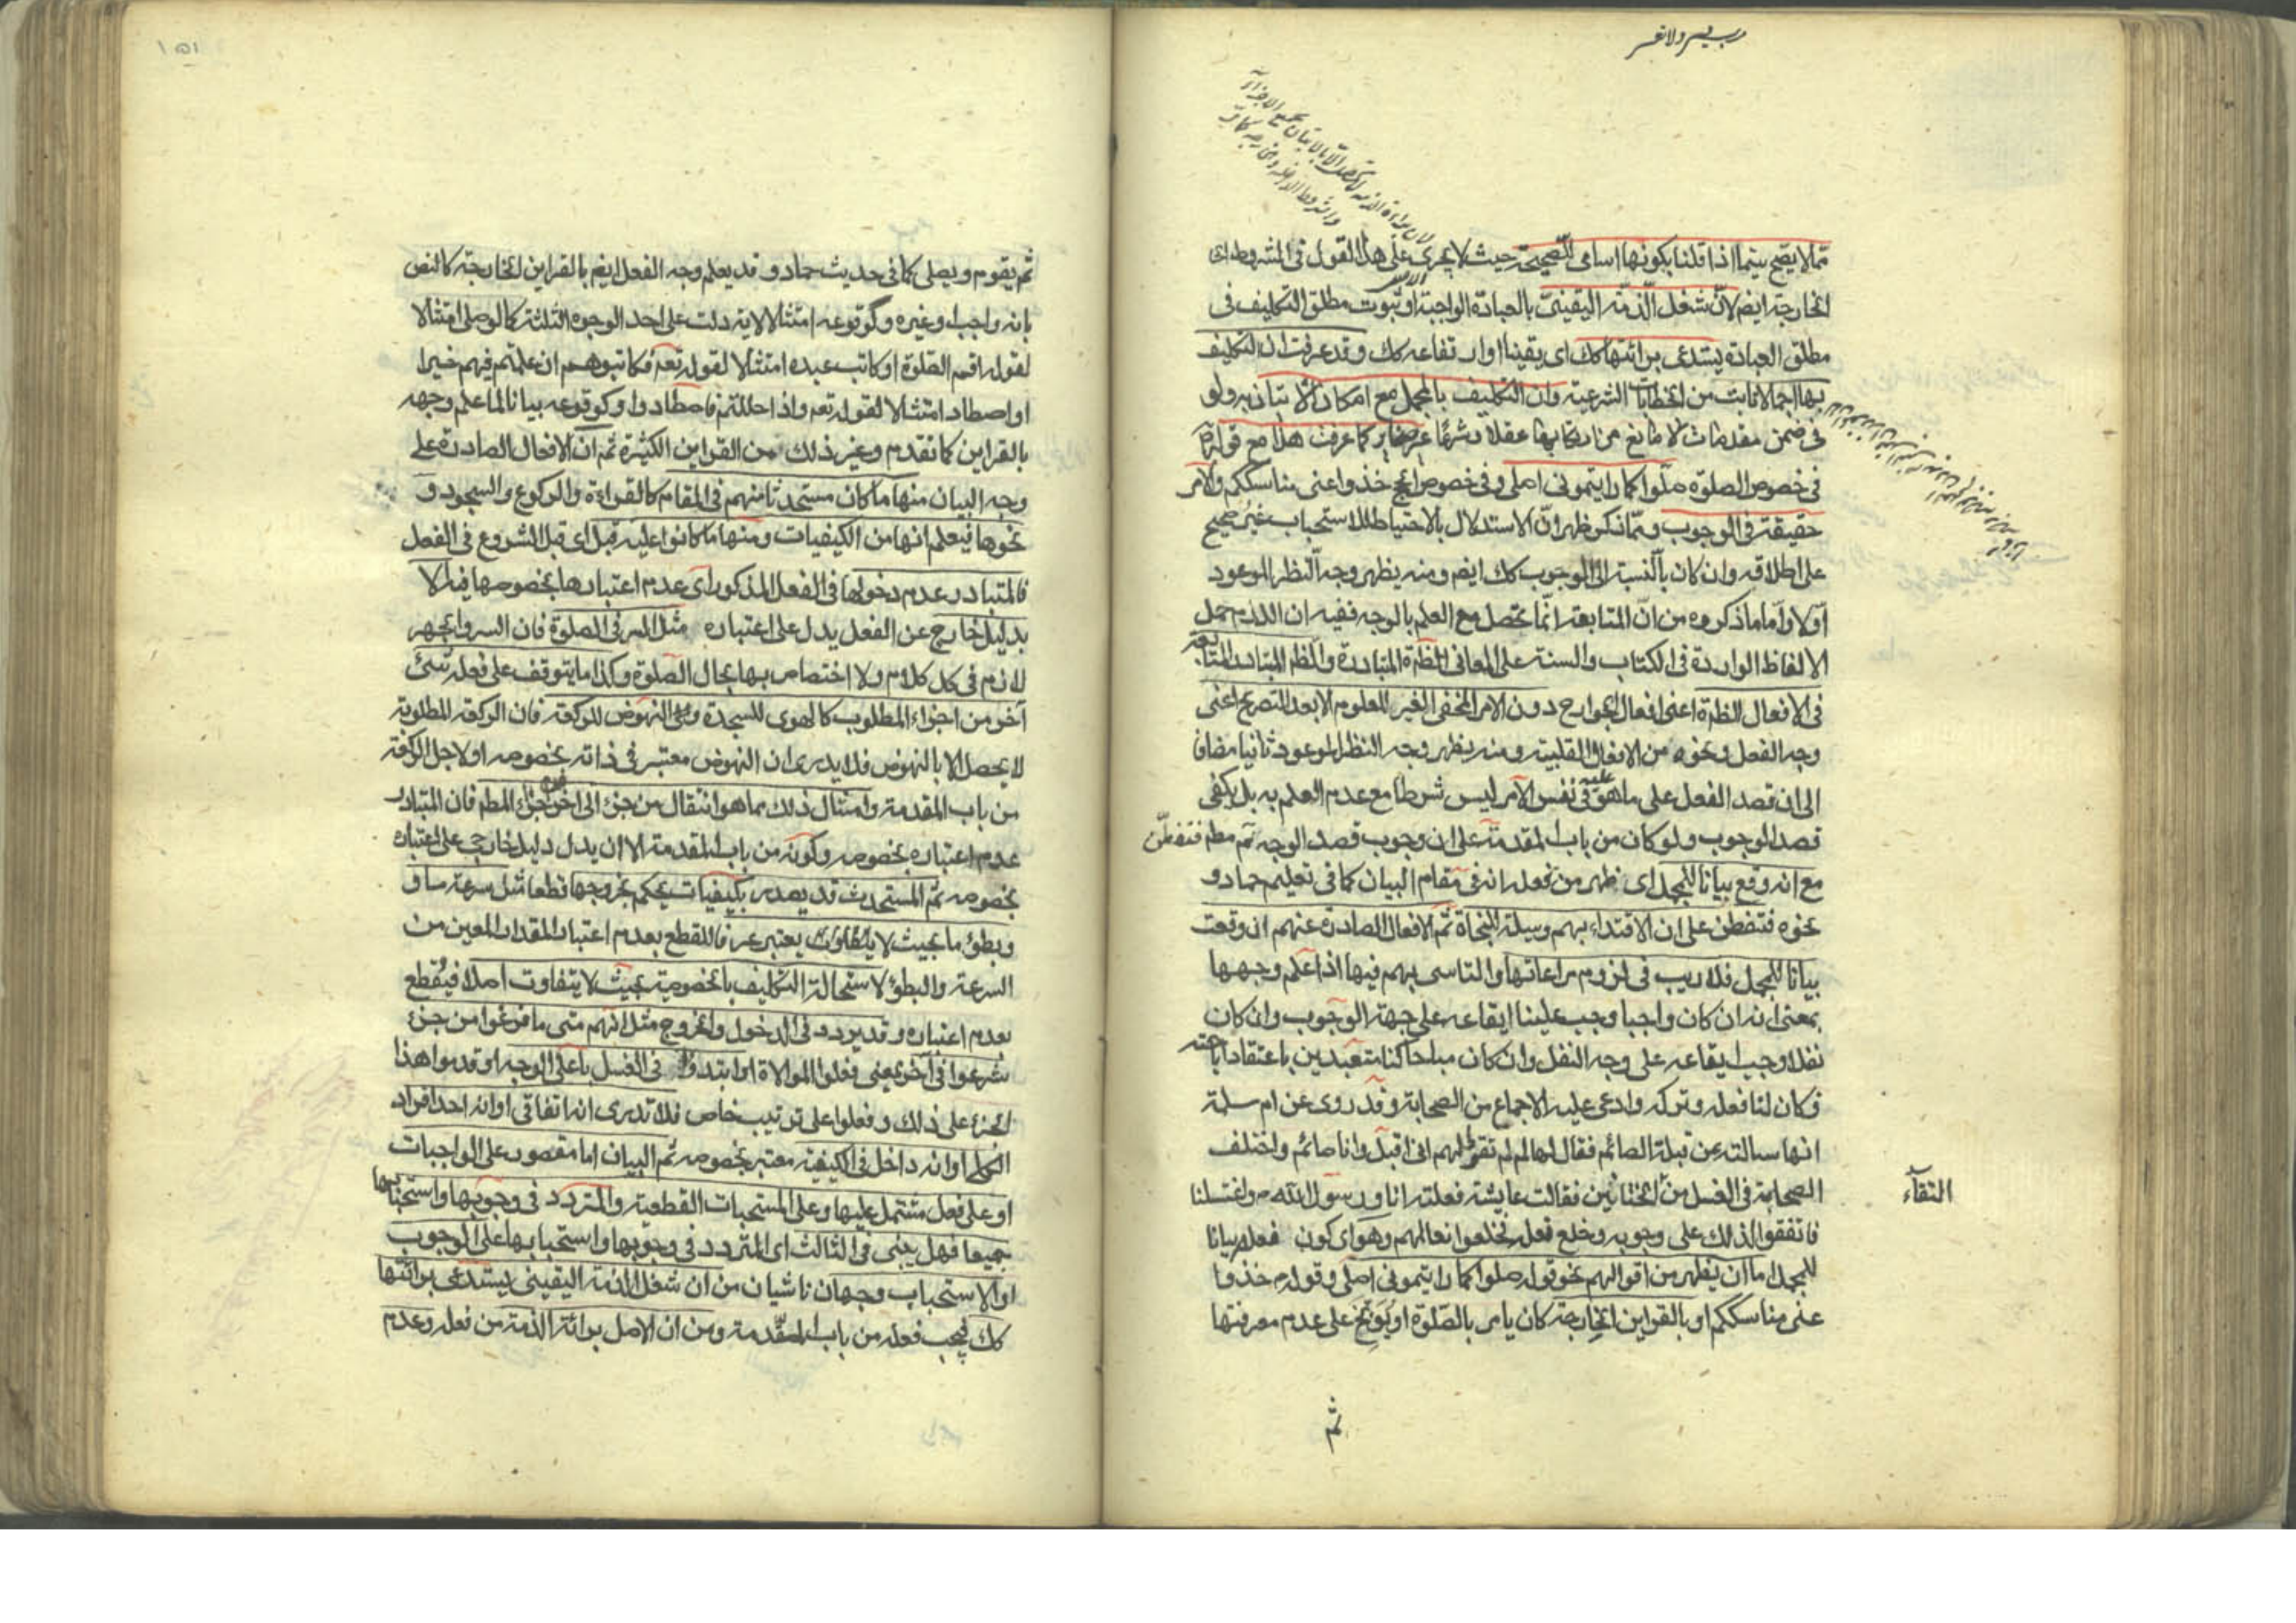 رب يسر ولا تعسر
مما لا يصح سيما اذا قلنا بكونها اسامي للصحيحة حيث لا يجري على هذا القول في الشروط اى
الخارجة ايضم لان شغل الذمة اليقيني بالعبادة الواجبة او ثبوت مطلق التكليف في
مطلق العبادة يستدعى برائتها كك اى يقينا او ارتفاعه كك وقد عرفت ان التكليف
بها اجمالا ثابت من الخطابات الشرعية وان التكليف بالمجمل مع امكان الاتيان به ولو
في ضمن مقدمات لا مانع من ارتكابها عقلا وشرعا كما عرفت هذا مع قوله
في خصوص الصلوة صلوا كما رايتموني اصلي وفي خصوص الحج خذوا عنى مناسككم والامر
حقيقة في الوجوب ومما ذكر ظهر ان الاستدلال بالاحتياط للاستحباب غير صحيح
على اطلاقه وان كان بالنسبة الى الوجوب كك ايضم ومنه يظهر وجه النظر الموعود
اولا واما ما ذكروه من ان المتابعة انما تحصل مع العلم بالوجه ففيه ان اللازم حمل
الالفاظ الواردة في الكتاب والسنة على المعاني الظم المتبادرة والظم المتبادر المتابعة
في الافعال الظم اعنى افعال الجوارح دون الامر المخفى الغير المعلوم الا بعد التصريح اعنى
وجه الفعل ونحوه من الافعال القلبية ومنه يظهر وجه النظر الموعود ثانيا مضافا
الى ان قصد الفعل على ما هو عليه في نفس الامر ليس شرطا مع عدم العلم به بل يكفى
قصد الوجوب ولو كان من باب المقدمة على ان وجوب قصد الوجه تم مطم فتفطن
مع انه وقع بيانا للمجمل اى ظهر من فعله انه في مقام البيان كما في تعليم حماد و
نحوه فتفطن على ان الاقتداء بهم وسيلة النجاة ثم الافعال الصادرة عنهم ان وقعت
بيانا للمجمل فلا ريب في لزوم مراعاتها والتاسى بهم فيها اذا علم وجهها
بمعنى انه ان كان واجبا وجب علينا ايقاعه على جهة الوجوب وان كان
نفلا وجب ايقاعه على وجه النفل وان كان مباحا كنا متعبدين باعتقاد اباحته
فكان لنا فعله وتركه وادعى عليه الاجماع من الصحابة وقد روى عن ام سلمة
انها سالته عن قبلة الصائم فقال لها لم لم تقولى لهم انى اقبل وانا صائم واختلف
الصحابة في الغسل من الختانين فقالت عايشة فعلته انا ورسول الله ص واغتسلنا
التقاء
فاتفقوا لذلك على وجوبه وخلع فعله فخلعوا نعالهم وهو اى كون فعله بيانا
للمجمل اما ان يظهر من اقوالهم نحو قوله صلوا كما رايتموني اصلي وقوله خذوا
عنى مناسككم او بالقراين الخارجة كان يامر بالصلوة او يوبخ على عدم معرفتها
ثم
ثم يقوم ويصلى كما في حديث حماد وقد يعلم وجه الفعل ايضم بالقراين الخارجة كالنص
بانه واجب او غيره وكوقوعه امتثالا لاية دلت على احد الوجوه الثلثة كما لو صلى امتثالا
لقوله اقم الصلوة او كاتب عبده امتثالا لقوله تعم فكاتبوهم ان علمتم فيهم خيرا
او اصطاد امتثالا لقوله تعم واذا حللتم فاصطادوا وكوقوعه بيانا لما علم وجهه
بالقراين كما تقدم وغير ذلك من القراين الكثيرة ثم ان الافعال الصادرة على
وجه البيان منها ما كان مستحدثا منهم في المقام كالقراءة والركوع والسجود و
نحوها فيعلم انها من الكيفيات ومنها ما كانوا عليه قبل اى قبل الشروع في الفعل
فالمتبادر عدم دخولها في الفعل المذكور اى عدم اعتبارها بخصوصها فيه الا
بدليل خارج عن الفعل يدل على اعتباره مثل السر في الصلوة فان السر والجهر
لازم في كل كلام ولا اختصاص بها بحال الصلوة وكذا ما يتوقف على فعله شئ
آخر من اجزاء المطلوب كالهوى للسجدة والنهوض للركعة فان الركعة المطلوبة
لا يحصل الا بالنهوض فلا يدرى ان النهوض معتبر في ذاته بخصوصه او لاجل الركعة
من باب المقدمة وامثال ذلك مما هو انتقال من جزء الى اخر من اجزاء المطم فان المتبادر
عدم اعتباره بخصوصه وكونه من باب المقدمة الا ان يدل دليل خارجي على اعتباره
بخصوصه ثم المستحدث قد يصدر بكيفيات يحكم بخروجها قطعا مثل سرعة ما و
وبطؤ ما بحيث لا يتفاوت يعتبر عرفا للقطع بعدم اعتبار المقدار المعين من
السرعة والبطؤ لاستحالة التكليف بالخصوصية بحيث لا يتفاوت اصلا فيقطع
بعدم اعتباره وقد يردد في الدخول والخروج مثل انهم متى ما فرغوا من جزء
شرعوا في آخر يعنى فعلوا الموالاة او ابتدؤا في الغسل باعلى الوجه او قدموا هذا
الجزء على ذلك وفعلوا على ترتيب خاص فلا تدرى انه اتفاقى او انه احد افراد
الكلى او انه داخل في الكيفية معتبر بخصوصه ثم البيان اما مقصور على الواجبات
او على فعل مشتمل عليها وعلى المستحبات القطعية والمتردد في وجوبها واستحبابها
جميعا فهل يبنى في الثالث اى المتردد في وجوبها واستحبابها على الوجوب
او الاستحباب وجهان ناشيان من ان شغل الذمة اليقيني يستدعى برائتها
كك فيجب فعله من باب المقدمة ومن ان الاصل برائة الذمة من فعله وعدم